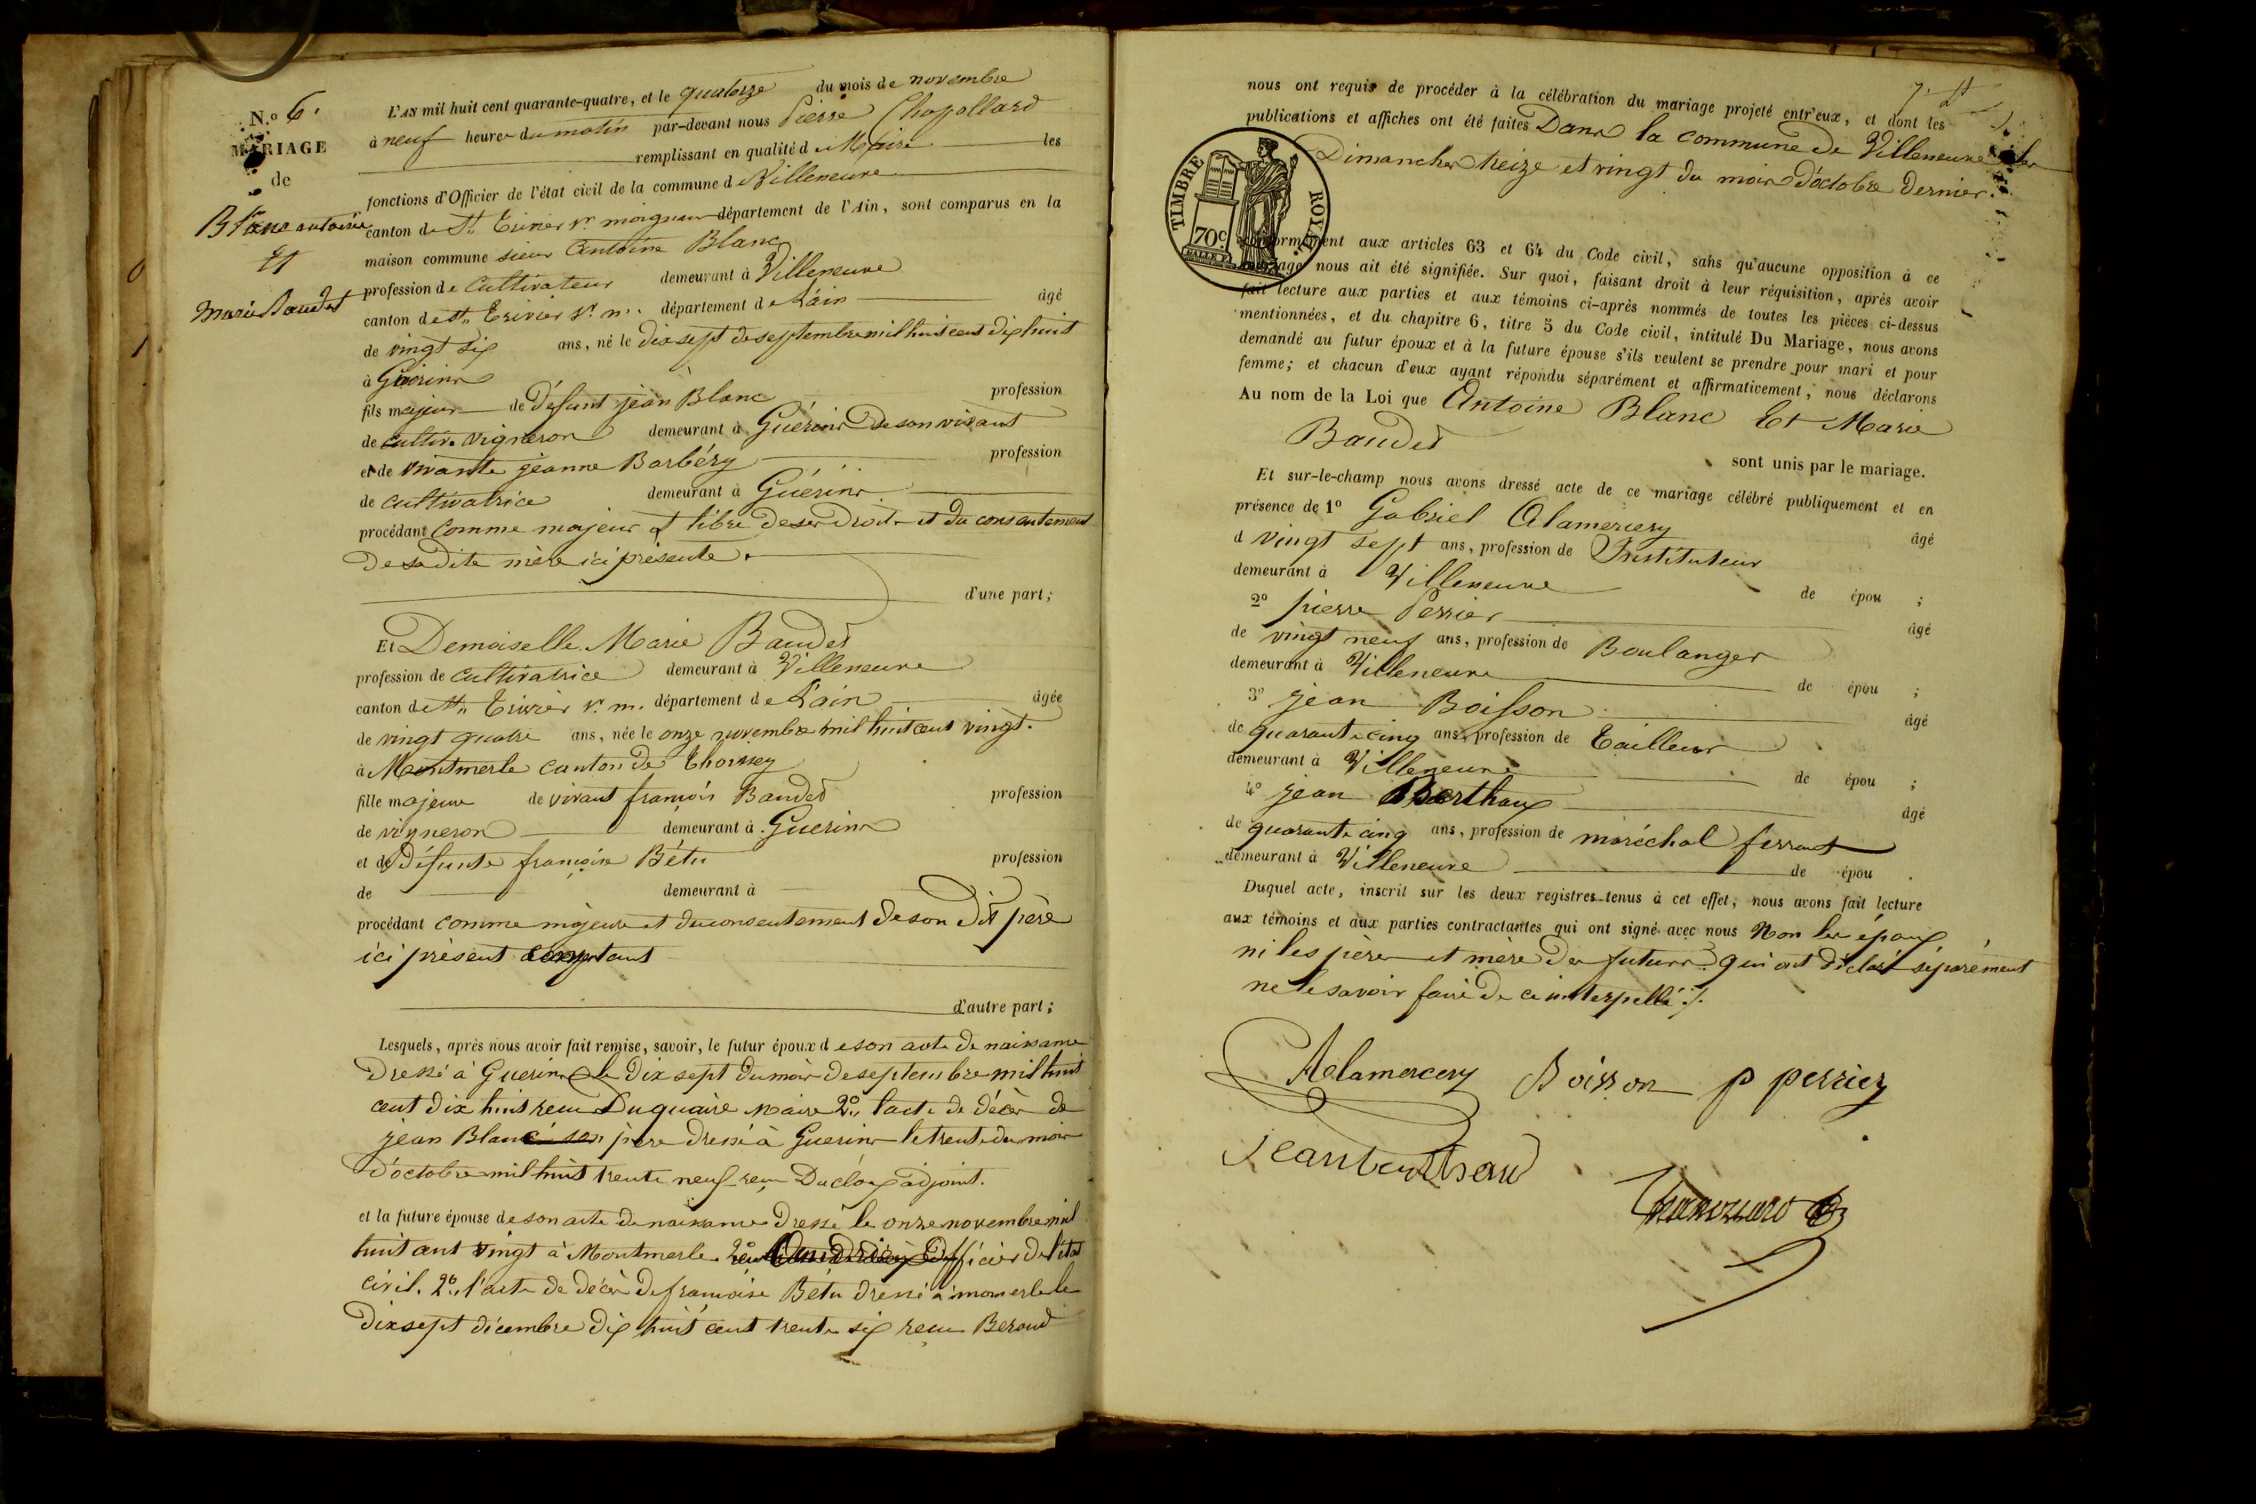 N.o 6.
MARIAGE
de
Blanc antoine
Et
marie Baudet
L'AN mil huit cent quarante-quatre, et le quatorze du mois de novembre
à neuf heures du matin par-devant nous Pierre Chapollard
remplissant en qualité de Maire les
fonctions d'Officier de l'état civil de la commune de Villeneuve
canton de St. Trivier Sr. moignans département de l'Ain, sont comparus en la
maison commune sieur Antoine Blanc
profession de Cultivateur demeurant à Villeneuve
canton de St. Trivier Sr. m. département de L'ain âgé
de vingt six ans, né le dix sept de septembre mil huit cent dix huit
à Guérins
fils majeur de Défunt jean Blanc profession
de cultiv. vigneron demeurant à Guérins de son vivant
et de vivante jeanne Barbéry profession
de cultivatrice demeurant à Guérins
procédant comme majeur et libre de ses Droits et du consentement
de sa dite mère ici présente.
d'une part;
Et Demoiselle Marie Baudet
profession de cultivatrice demeurant à Villeneuve
canton de St. Trivier Sr. m. département de L'ain âgée
de vingt quatre ans, née le onze novembre mil huit cent vingt.
à Montmerle canton de Thoissey
fille majeure de vivant françois Baudet profession
de vigneron demeurant à Guerins
et de Défunte françoise Bétu profession
de demeurant à
procédant comme majeure et du consentement de son Dit père
ici présent
d'autre part;
Lesquels, après nous avoir fait remise, savoir, le futur époux de son acte de naissance
Dressé à Guerins le Dix sept du mois de septembre mil huit
cent dix huit reçu Duquaire Maire 2o. l'acte de décès de
jean Blanc son père dressé à Guerins le trente du mois
d'octobre mil huit trente neuf reçu Ducloux adjoint.
et la future épouse de son acte de naissance Dressé le onze novembre mil
huit cent vingt à Montmerle officier de l'état
civil. 2o. l'acte de décès de françoise Bétu dressé à le
Dix sept décembre dix huit cent trente six reçu Beroud
nous ont requis de procéder à la célébration du mariage projeté entr'eux, et dont les
publications et affiches ont été faites Dans la commune de Villeneuve les
Dimanches treize et vingt du mois d'octobre dernier.
TIMBRE ROYAL
70c.
conformément aux articles 63 et 64 du Code civil, sans qu'aucune opposition à ce
mariage nous ait été signifiée. Sur quoi, faisant droit à leur réquisition, après avoir
fait lecture aux parties et aux témoins ci-après nommés de toutes les pièces ci-dessus
mentionnées, et du chapitre 6, titre 5 du Code civil, intitulé Du Mariage, nous avons
demandé au futur époux et à la future épouse s'ils veulent se prendre pour mari et pour
femme; et chacun d'eux ayant répondu séparément et affirmativement, nous déclarons
Au nom de la Loi que Antoine Blanc Et Marie
Baudet
sont unis par le mariage.
Et sur-le-champ nous avons dressé acte de ce mariage célébré publiquement et en
présence de 1o Gabriel Alamercery âgé
d vingt sept ans, profession de Instituteur
demeurant à Villeneuve de épou ;
2o pierre Perrier âgé
de vingt neuf ans, profession de Boulanger
demeurant à Villeneuve de épou ;
3o jean Boisson âgé
de quarante cinq ans, profession de Tailleur
demeurant à Villeneuve de épou ;
4o jean Berthaux âgé
de quarante cinq ans, profession de maréchal ferrant
demeurant à Villeneuve de épou .
Duquel acte, inscrit sur les deux registres tenus à cet effet, nous avons fait lecture
aux témoins et aux parties contractantes qui ont signé avec nous Non les époux
ni les père et mère des futurs qui ont déclaré séparément
ne le savoir faire de ce interpellé ./.
Alamercery Boisson p perrier